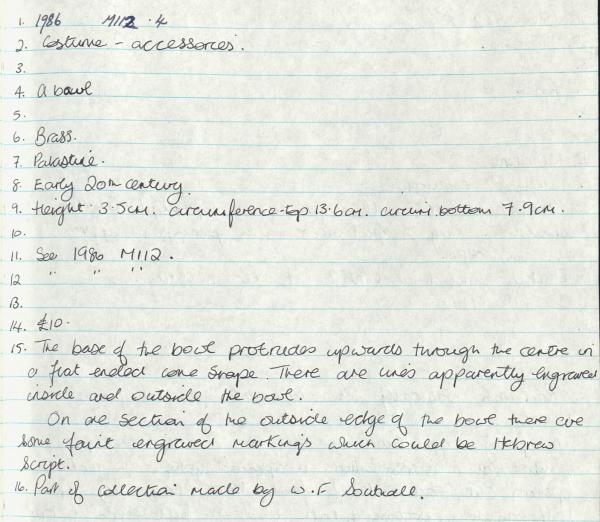 1. 1986 M112 .4
2. Costume - accessories.
3.
4. A bowl
5.
6. Brass.
7. Palastine.
8. Early 20th century.
9. Height 3.5cm. circumference-top 13.6cm. circum. bottom 7.9cm.
10.
11. See 1986 M112.
12 " " "
13.
14. £10.
15. The base of the bowl protrudes upwards through the centre in
a flat ended cone shape. There are lines apparently engraved
inside and outside the bowl.
On one section of the outside edge of the bowl there are
some faint engraved markings which could be Hebrew
script.
16. Part of collection made by W.F Southall.